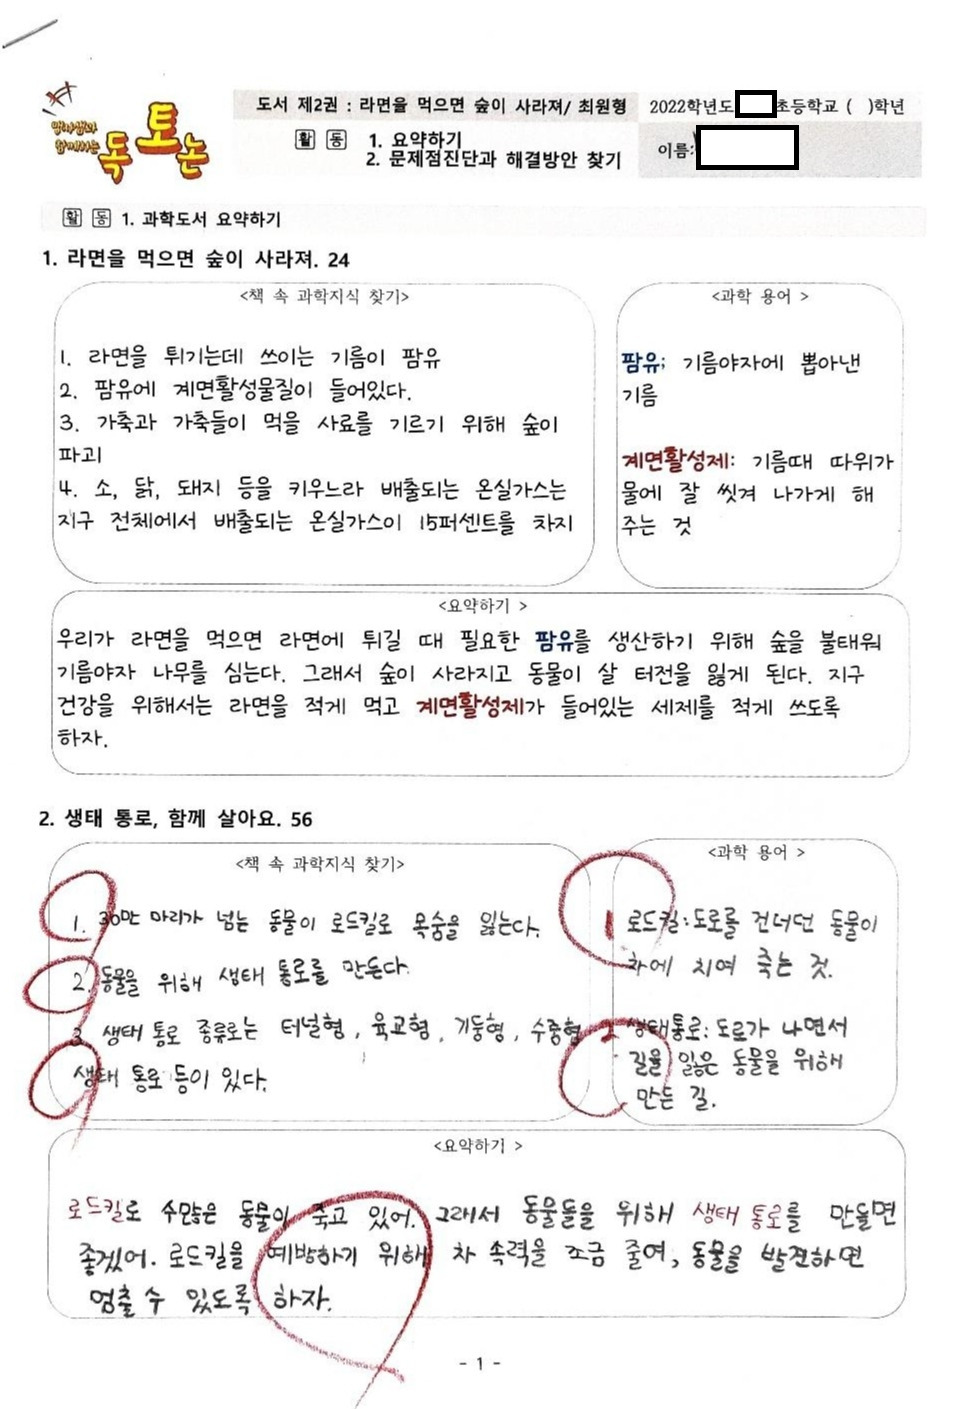 앙샘과
함께하는
독토논
도서 제2권 : 라면을 먹으면 숲이 사라져/ 최원형
2022학년도 초등학교 ( )학년
활 동 1. 요약하기
2. 문제점진단과 해결방안 찾기
이름:
활 동 1. 과학도서 요약하기
1. 라면을 먹으면 숲이 사라져. 24
<책 속 과학지식 찾기>
1. 라면을 튀기는데 쓰이는 기름이 팜유
2. 팜유에 계면활성물질이 들어있다.
3. 가축과 가축들이 먹을 사료를 기르기 위해 숲이
파괴
4. 소, 닭, 돼지 등을 키우느라 배출되는 온실가스는
지구 전체에서 배출되는 온실가스이 15퍼센트를 차지
<과학 용어 >
팜유; 기름야자에 뽑아낸
기름
계면활성제: 기름때 따위가
물에 잘 씻겨 나가게 해
주는 것
<요약하기 >
우리가 라면을 먹으면 라면에 튀길 때 필요한 팜유를 생산하기 위해 숲을 불태워
기름야자 나무를 심는다. 그래서 숲이 사라지고 동물이 살 터전을 잃게 된다. 지구
건강을 위해서는 라면을 적게 먹고 계면활성제가 들어있는 세제를 적게 쓰도록
하자.
2. 생태 통로, 함께 살아요. 56
<책 속 과학지식 찾기>
1. 30만 마리가 넘는 동물이 로드킬로 목숨을 잃는다.
2. 동물을 위해 생태 통로를 만든다.
3 생태 통로 종류로는 터널형, 육교형, 기둥형, 수중형
생태 통로 등이 있다.
<과학 용어 >
1 로드킬:도로를 건너던 동물이
차에 치여 죽는 것.
2 생태통로: 도로가 나면서
길을 잃은 동물을 위해
만든 길.
<요약하기 >
로드킬로 수많은 동물이 죽고 있어. 그래서 동물들을 위해 생태 통로를 만들면
좋겠어. 로드킬을 예방하기 위해 차 속력을 조금 줄여, 동물을 발견하면
멈출 수 있도록 하자.
- 1 -